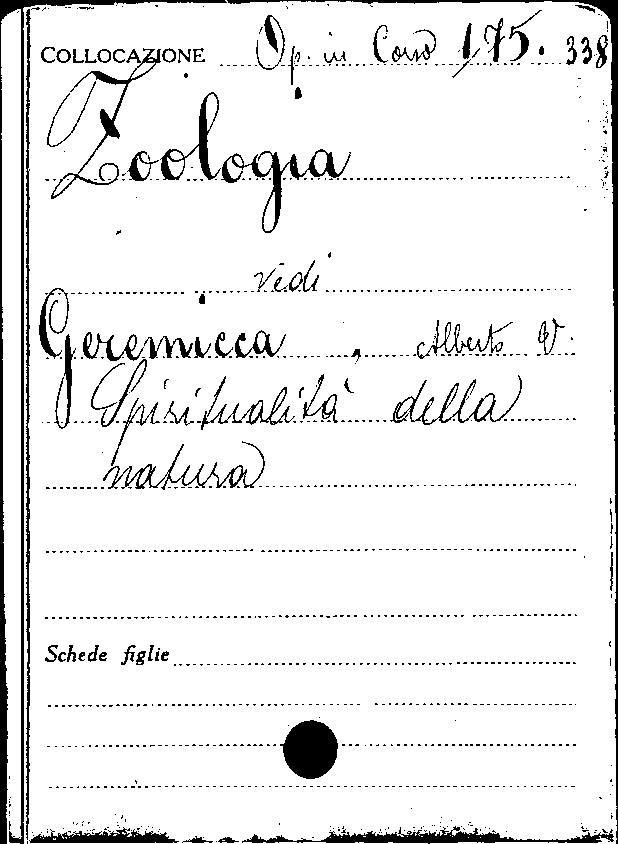 COLLOCAZIONE Op. in Corso 175. 338
Zoologia
vedi
Geremicca, Alberto V.
Spiritualità della
natura
Schede figlie